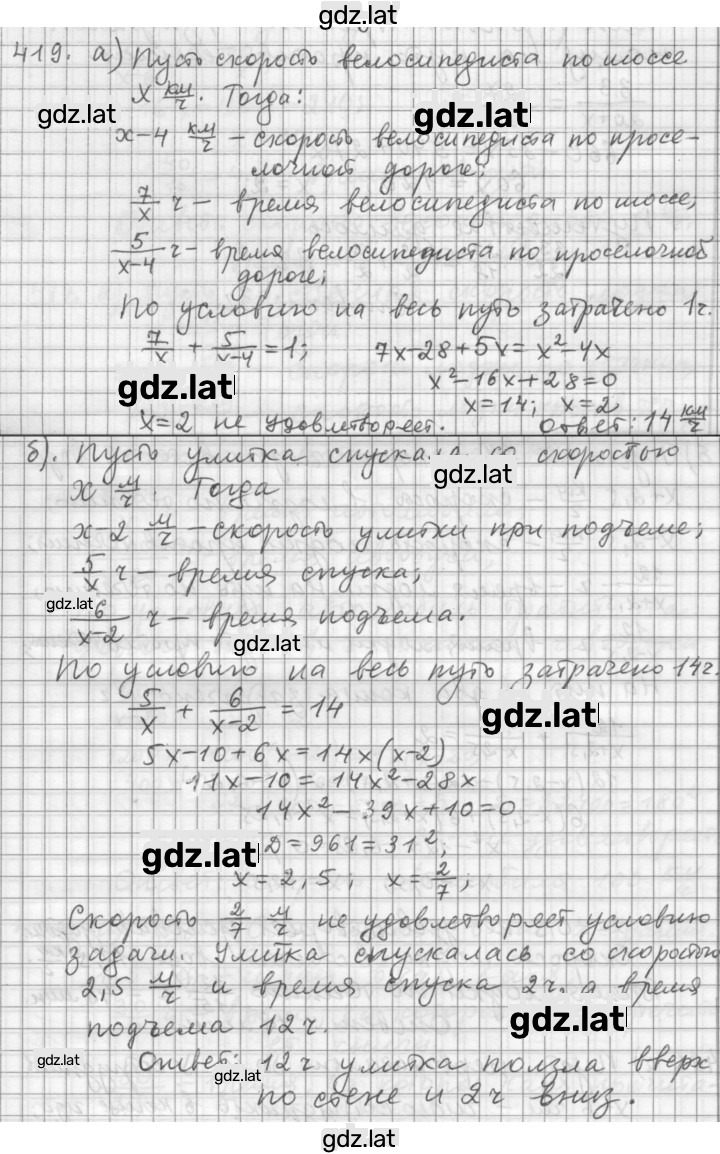 gdz.lat
419. а) Пусть скорость велосипедиста по шоссе
x км/ч. Тогда:
gdz.lat
gdz.lat
x-4 км/ч – скорость велосипедиста по просе-
лочной дороге;
7/x ч – время велосипедиста по шоссе,
5/(x-4) ч – время велосипедиста по проселочной
дороге;
По условию на весь путь затрачено 1ч.
7/x + 5/(x-4) = 1; 7x-28+5x = x²-4x
gdz.lat
x²-16x+28=0
x=14; x=2
x=2 не удовлетворяет. Ответ: 14 км/ч
б). Пусть улитка со скоростью
gdz.lat
x м/ч. Тогда
x-2 м/ч – скорость улитки при подъеме;
5/x ч – время спуска;
gdz.lat
6/(x-2) ч – время подъема.
gdz.lat
По условию на весь путь затрачено 14ч.
5/x + 6/(x-2) = 14
gdz.lat
5x-10+6x=14x(x-2)
11x-10= 14x²-28x
14x²-39x+10=0
gdz.lat
D=961=31²;
x=2,5; x=2/7;
Скорость 2/7 м/ч не удовлетворяет условию
задачи. Улитка спускалась со скоростью
2,5 м/ч и время спуска 2ч. а время
gdz.lat
подъема 12ч.
gdz.lat
Ответ: 12ч улитка ползла вверх
gdz.lat
по стене и 2ч вниз.
gdz.lat